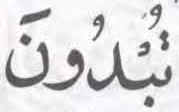 تُبْدُونَ